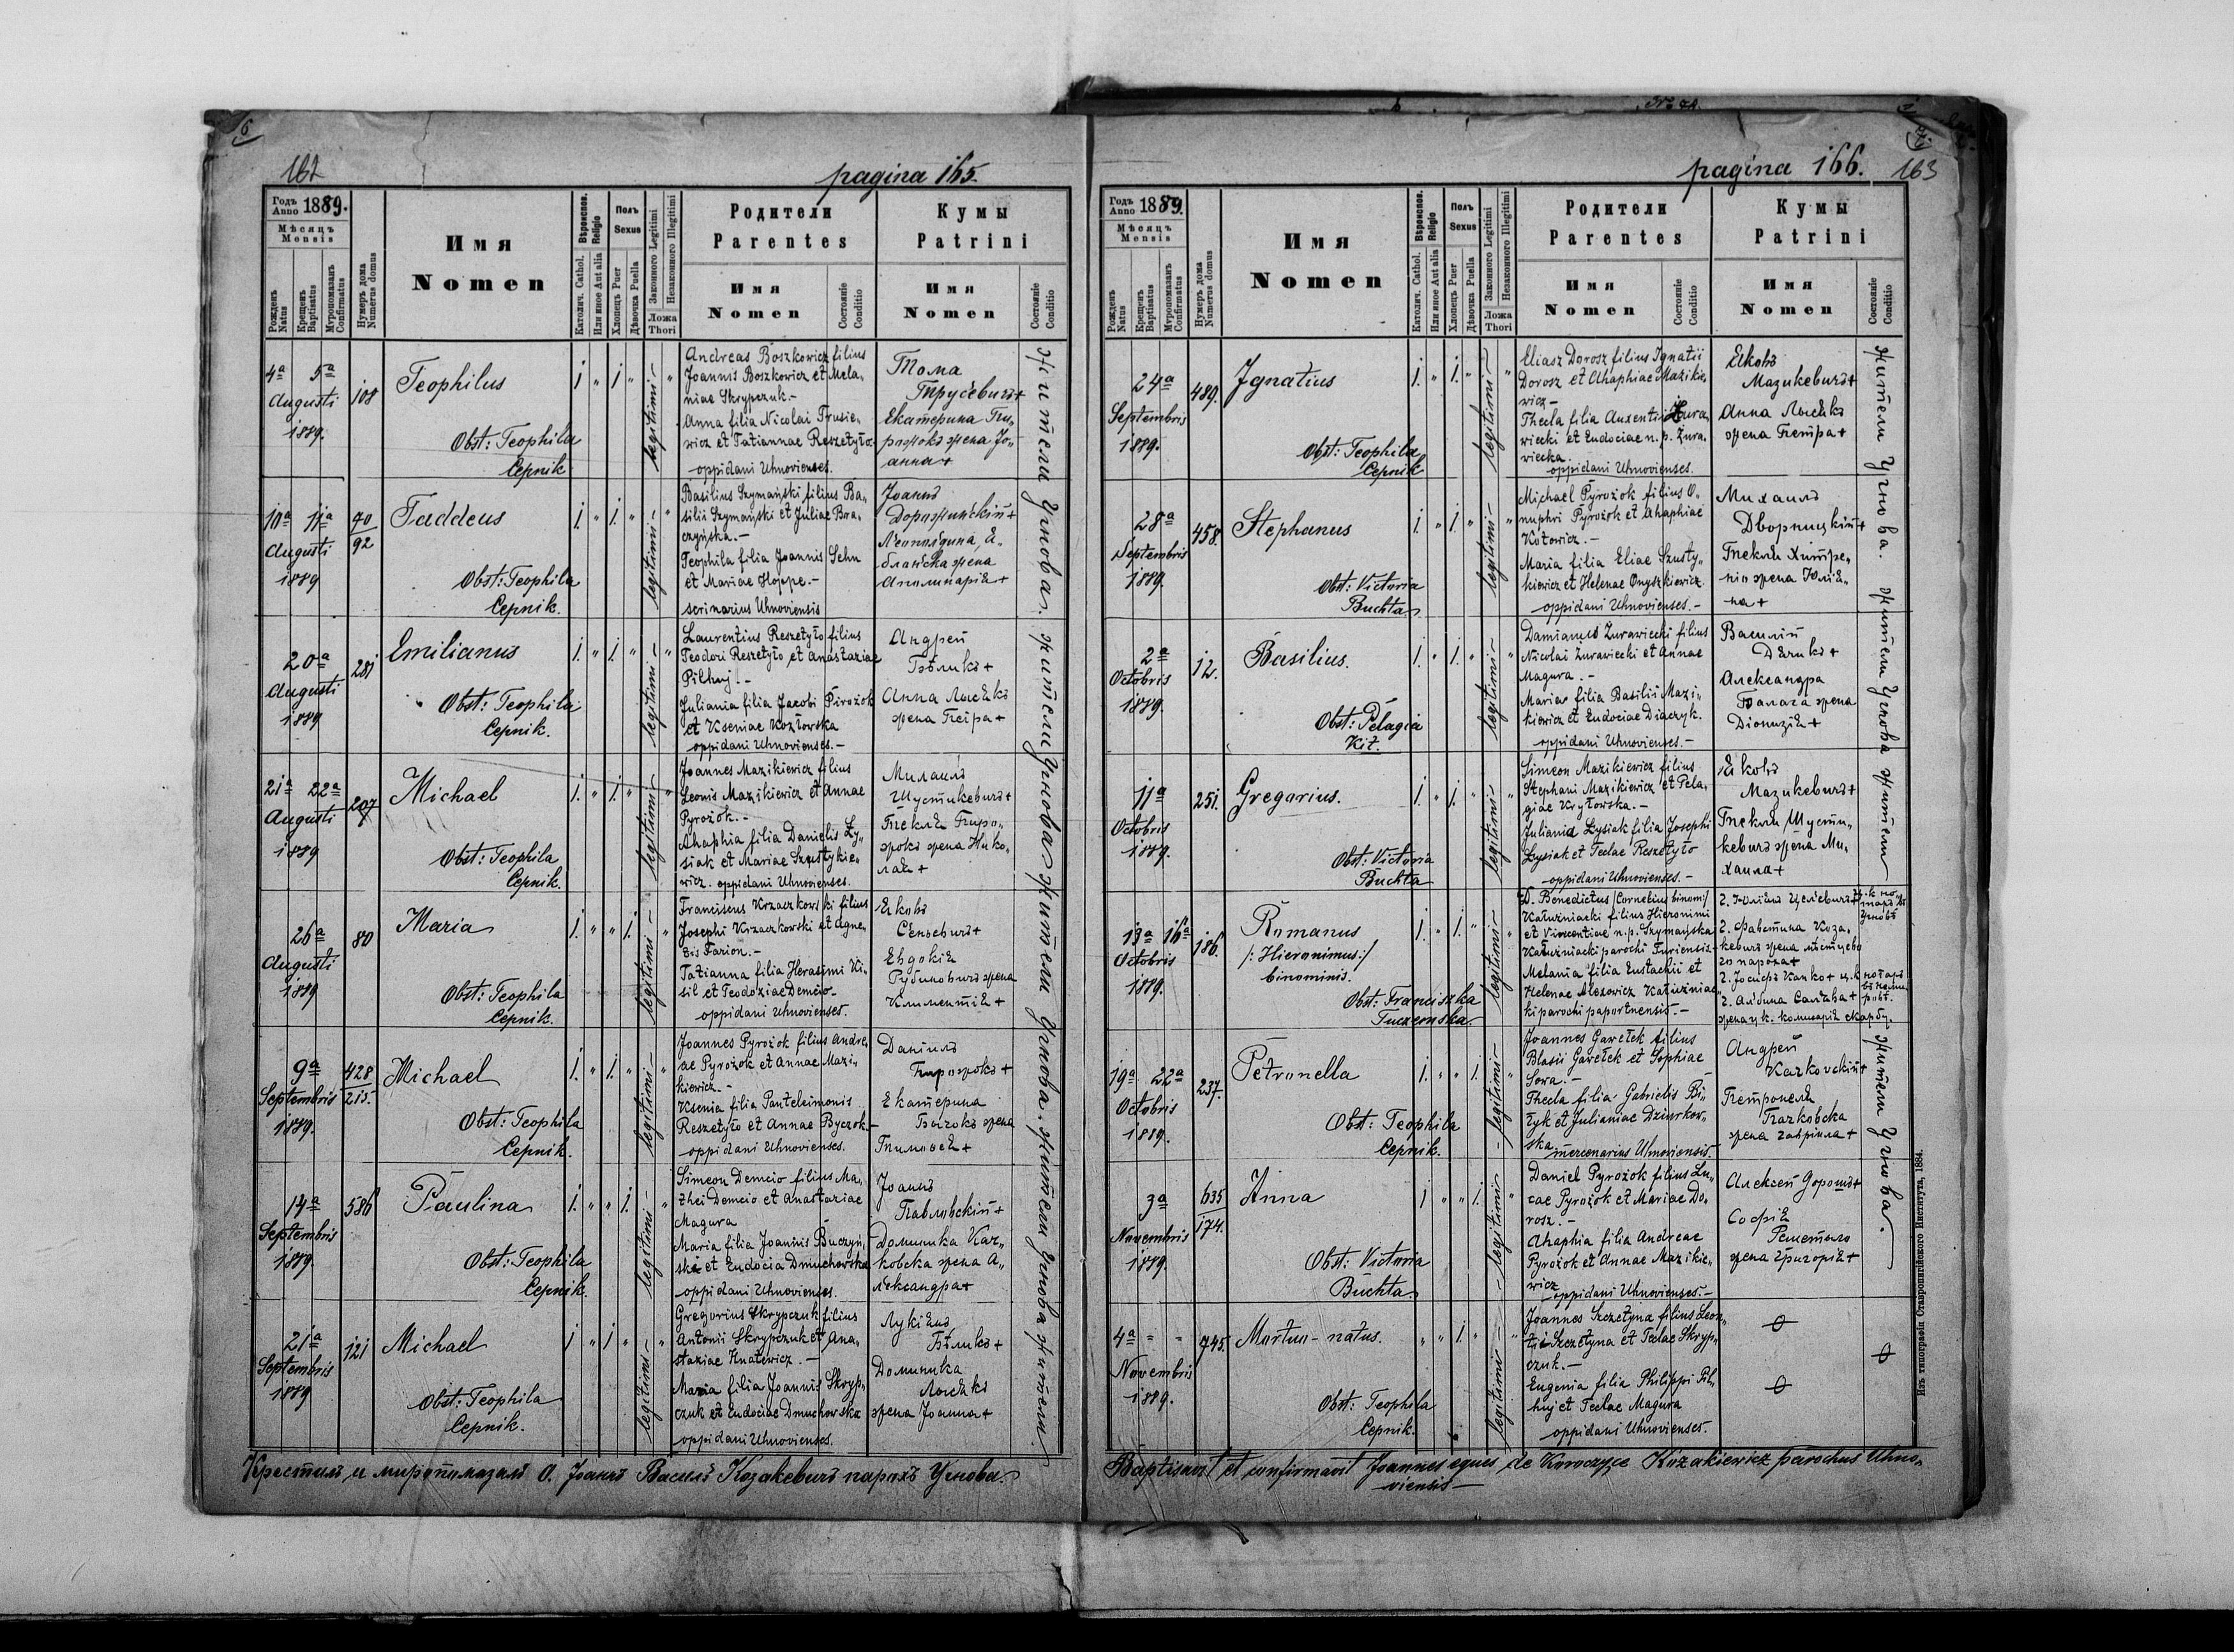 162
pagina 165.
Годъ Anno 1889.
Мѣсяцъ Mensis
Рожденъ Natus
Крещенъ Baptisatus
Муропомазанъ Confirmatus
Нумеръ дома Numerus domus
Имя Nomen
Вѣроиспов. Religio
Католич. Cathol.
Или иное Aut alia
Полъ Sexus
Хлопецъ Puer
Дѣвочка Puella
Законного Legitimi
Незаконного Illegitimi
Ложа Thori
Родители Parentes
Имя Nomen
Состояніе Conditio
Кумы Patrini
Имя Nomen
Состояніе Conditio
4a 5a
Augusti
1889.
108
Teophilus
Obst: Teophila
Cepnik
1 " 1 "
legitimi
Andreas Boszkowicz filius
Joannis Boszkowicz et Mela„
niae Skrypczuk.-
Anna filia Nicolai Trusie„
wicz et Tatiannae Reszetyło
oppidani Uhnovienses.
Тома
Трусевичъ+
Екатерина Пи„
рожокъ жена Jо„
анна+
10a 11a
Augusti
1889
90
92
Taddeus
Obst: Teophila
Cepnik.
1. " 1. "
legitimi
Basilius Szymański filius Ba„
silii Szymański et Juliae Bra„
czyńska.-
Teophila filia Joannis Sehn
et Mariae Hoppe.-
scrinarius Uhnoviensis
Jоаннъ
+
жена
+
20a
Augusti
1889
281
Emilianus
Obst: Teophila
Cepnik.
1. " 1. "
legitimi
Laurentius Reszetyło filius
Teodori Reszetyło et Anastaziae
Pilhuj.-
Juliania filia Jacobi Pirożok
et Kseniae Kozłowska
oppidani Uhnovienses.-
Андрей
Бѣликъ+
Анна Лысѣкъ
жена Петра+
21a 22a
Augusti
1889
207
Michael
Obst: Teophila
Cepnik.
1. " 1. "
legitimi
Joannes Mazikiewicz filius
Leonis Mazikiewicz et Annae
Pyrożok.-
Ahaphia filia Danielis Ły„
siak et Mariae Szustykie„
wicz. oppidani Uhnovienses.
Михаилъ
Шустикевичъ+
Текля Пиро„
жокъ жена Нико„
лая+
26a
Augusti
1889
80
Maria
Obst: Teophila
Cepnik.
1. " " 1.
legitimi
Franciscus Krzaczkowski filius
Josephi Krzaczkowski et Agne„
tis Farion.-
Tatianna filia Herasimi Ki„
sil et Teodoziae Demcio-
oppidani Uhnovienses.
Яковъ
Сеньевичъ+
Евдокія
Рубиновичъ жена
Климентія+
9a
Septembris
1889.
428
215.
Michael
Obst: Teophila
Cepnik.
1. " 1. "
legitimi
Joannes Pyrożok filius Andre„
ae Pyrożok et Annae Mazi„
kiewicz.-
Ksenia filia Panteleimonis
Reszetyło et Annae Byczok.-
oppidani Uhnovienses.
Даніилъ
Пирожокъ+
Екатерина
Бычокъ жена
Тимоѳея+
14a
Septembris
1889.
586
Paulina
Obst: Teophila
Cepnik.
1. " " 1.
legitimi
Simeon Demcio filius Ma„
thei Demcio et Anastaziae
Magura
Maria filia Joannis Buczyń„
ska et Eudocia Dmuchowska
oppidani Uhnovienses.
Jоаннъ
Павловскій+
Доминика Кач„
ковска жена А„
лександра+
21a
Septembris
1889
121
Michael
Obst: Teophila
Cepnik.
1 " 1 "
legitimi
Gregorius Skrypczuk filius
Antonii Skrypczuk et Ana„
staziae Hnatewicz.-
Maria filia Joannis Skryp„
czuk et Eudociae Dmuchowska
oppidani Uhnovienses.
Лукіянъ
Бѣликъ+
Доминика
Лысѣкъ
жена Jоанна+
жители Угнова. жители Угнова жители Угнова. жители Угнова жители.
Крестилъ и миропомазалъ О. Jоаннъ Василь Козакевичъ парохъ Угнова.
pagina 166.
163
Годъ Anno 1889.
Мѣсяцъ Mensis
Рожденъ Natus
Крещенъ Baptisatus
Муропомазанъ Confirmatus
Нумеръ дома Numerus domus
Имя Nomen
Вѣроиспов. Religio
Католич. Cathol.
Или иное Aut alia
Полъ Sexus
Хлопецъ Puer
Дѣвочка Puella
Законного Legitimi
Незаконного Illegitimi
Ложа Thori
Родители Parentes
Имя Nomen
Состояніе Conditio
Кумы Patrini
Имя Nomen
Состояніе Conditio
24a
Septembris
1889.
489.
Ignatius
Obst: Teophila
Cepnik
1. " 1. "
legitimi
Eliasz Dorosz filius Ignatii
Dorosz et Ahaphiae Mazikie„
wicz-
Thecla filia Auxentii Żura„
wiecki et Eudociae n. p. Żura„
wiecka.
oppidani Uhnovienses.
Яковъ
Мазикевичъ+
Анна Лысѣкъ
жена Петра+
28a
Septembris
1889.
458.
Stephanus
Obst: Victoria
Buchta
1. " 1. "
legitimi
Michael Pyrożok filius O„
nuphri Pyrożok et Ahaphiae
Kotowicz.-
Maria filia Eliae Szusty„
kiewicz et Helenae Onyszkiewicz
oppidani Uhnovienses.-
Михаилъ
Дворницкій+
Текля
жена Юлія„
на+
2a
Octobris
1889.
12.
Basilius.
Obst: Pelagia
Kit.
1. " 1. "
legitimi
Damianus Żurawiecki filius
Nicolai Żurawiecki et Annae
Magura.-
Maria filia Basilii Mazi„
kiewicz et Eudociae Diaczyk.
oppidani Uhnovienses.-
Василій
Дячикъ+
Александра
Балага жена
Діонизія+
11a
Octobris
1889.
251.
Gregorius.
Obst: Victoria
Buchta
1. " 1. "
legitimi
Simeon Mazikiewicz filius
Stephani Mazikiewicz et Pela„
giae Kryłowska.-
Juliania Łysiak filia Josephi
Łysiak et Teclae Reszetyło
oppidani Uhnovienses.-
Яковъ
Мазикевичъ+
Текля Шусти„
кевичъ жена Ми„
хаила+
13a 16a
Octobris
1889.
186.
Romanus
/:Hieronimus:/
binominis.
Obst: Franciszka
Tuczemska.
1. " 1. "
legitimi
D. Benedictus /Cornelius binom:/
Kałużniacki filius Hieronimi
et Vincentiae n. p. Szymańska
Kałużniacki parochi Turiensis.-
Melania filia Eustachii et
Helenae Alexowicz Kałużniac„
ki parochi paportnensis.-
г. Юліянъ
г. Фавстина Коза„
кевичъ жена мѣстцево
го пароха+
г. Jосифъ Калко+
г. Албина
жена ц. к.
19a 22a
Octobris
1889.
237.
Petronella
Obst: Teophila
Cepnik.
1. " " 1.
legitimi
Joannes Gawełek filius
Blasii Gawełek et Sophiae
Sowa.-
Thecla filia Gabrielis Bi„
łyk et Julianiae Dziurkow„
ska mercenarius Uhnoviensis.
Андрей
Качковскій+
Петронеля
Качковска
жена Гавріила+
3a
Novembris
1889.
635
174.
Anna
Obst: Victoria
Buchta.
1 " " 1.
legitimi
Daniel Pyrożok filius Lu„
cae Pyrożok et Mariae Do„
rosz.-
Ahaphia filia Andreae
Pyrożok et Annae Mazikie„
wicz
oppidani Uhnovienses.-
Алексей Дорошъ+
Софія
Решетило
жена Григорія+
4a
Novembris
1889.
745.
Mortuo-natus.
Obst: Teophila
Cepnik.
" " 1. "
legitimi
Joannes Szczetyna filius Leon„
tii Szczetyna et Teclae Skryp„
czuk.-
Eugenia filia Philippi Pil„
huj et Teclae Magura
oppidani Uhnovienses.
жители Угнова. жители Угнова жители
жители Угнова.
Baptisavit et confirmavit Joannes eques de Koroczyce Kozakiewicz parochus Uhno„
viensis-
Изъ типографіи Ставропигійского Института, 1884.